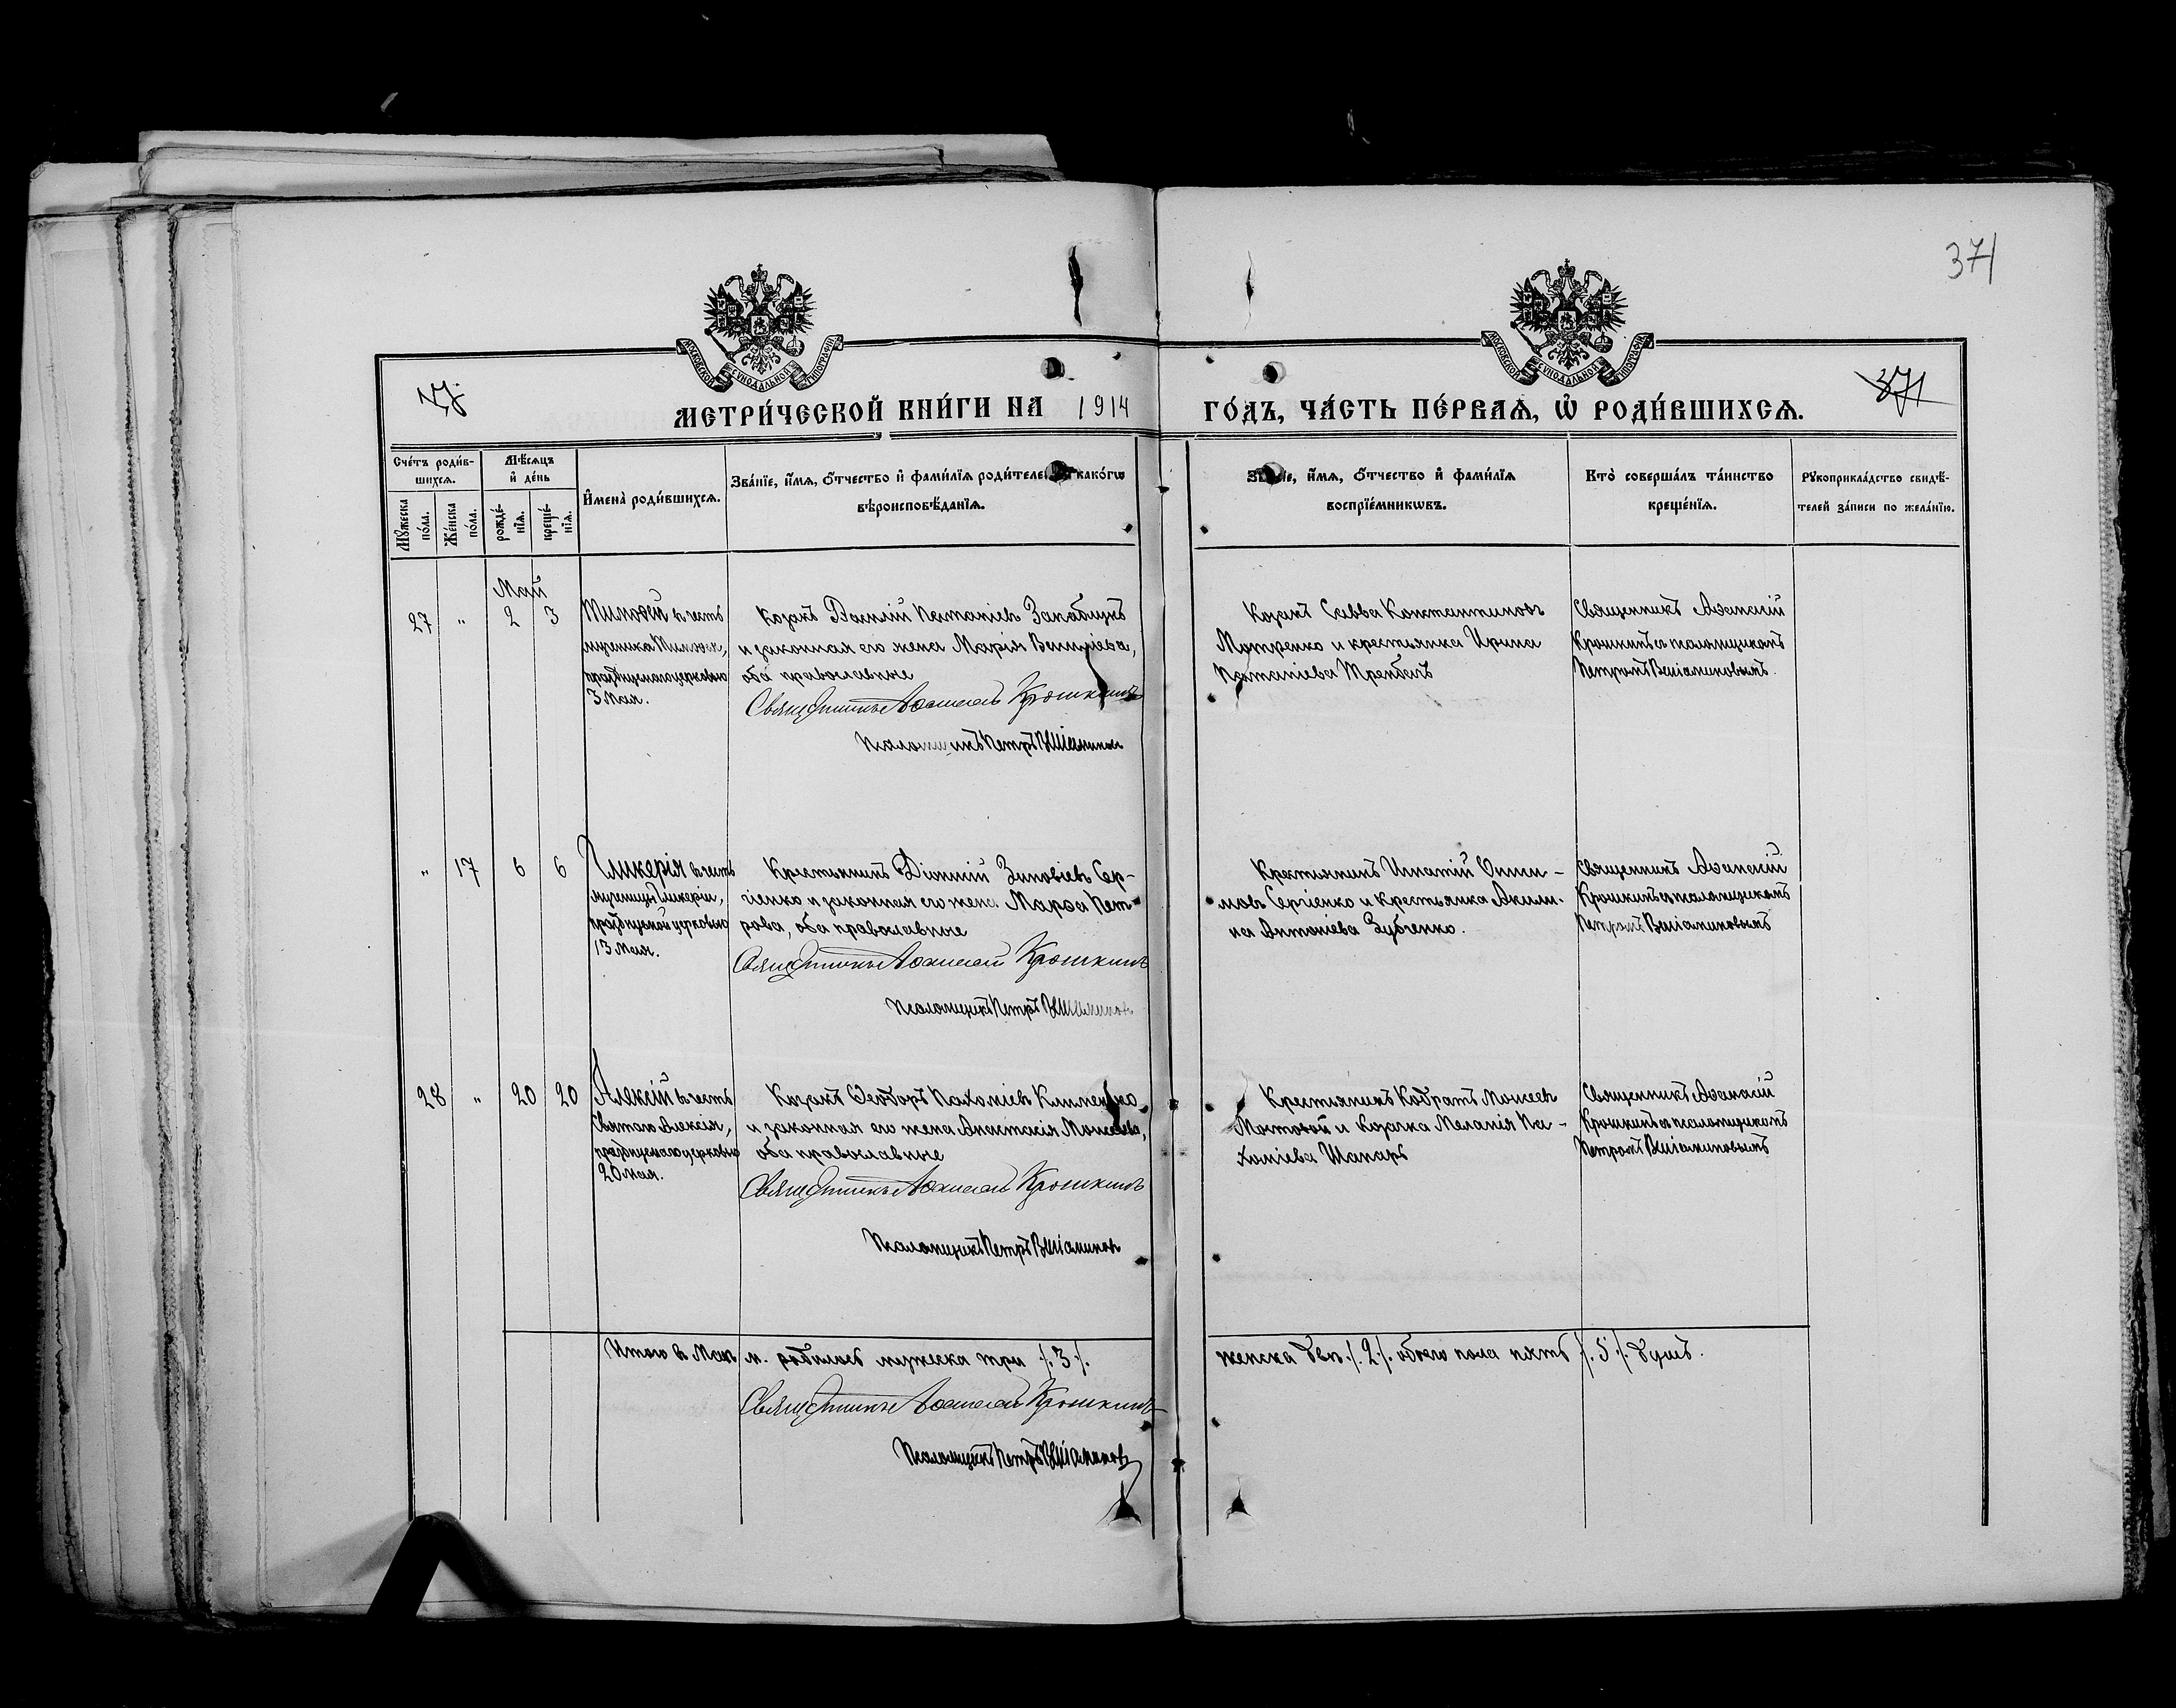 371
МОСКОВСКОЙ СУНОДАЛЬНОЙ ТИПОГРАФІИ
МОСКОВСКОЙ СУНОДАЛЬНОЙ ТИПОГРАФІИ
371
МЕТРИ́ЧЕСКОЙ КНИ́ГИ НА 1914 ГО́ДЪ, ЧА́СТЬ ПЕ́РВАѦ, Ѡ҆ РОДИ́ВШИХСѦ.
Сче́тъ роди́в-
шихсѧ.
Мѣ́сѧцъ
и҆ де́нь
Мꙋ́жеска по́ла.
Же́нска по́ла.
рожде́-
нїѧ.
креще́-
нїѧ.
И҆мена̀ роди́вшихсѧ.
Зва́нїе, и҆́мѧ, ѻ҆́тчество и҆ фами́лїѧ роди́теле како́гѡ
вѣроисповѣ́данїѧ.
и҆́мѧ, ѻ҆́тчество и҆ фами́лїѧ
воспрїе́мникѡвъ.
Кто̀ соверша́лъ та́инство
креще́нїѧ.
Рꙋкоприкла́дство свидѣ́-
телей за́писи по жела́нїю.
Май
27 " 2 3
Тимоѳей в честь
мученика Тимоѳея,
празднуемаго церковью
3 Мая.
Козакъ Василій Потапіевъ
и законная его жена Марія
оба православные
Священникъ Аѳанасій Крошкинъ
Псаломщикъ Петръ Веніаминовъ
Козакъ Савва Константиновъ
и крестьянка Ирина
Потапіева
Священникъ Аѳанасій
Крошкинъ съ псаломщикомъ
Петромъ Веніаминовымъ.
" 17 6 6
Гликерія в честь
мученицы Гликеріи,
празднуемой церковью
13 Мая.
Крестьянинъ Діонисій Зиновіевъ Сер-
гіенко и законная его жена Марѳа Пет-
рова, оба православные
Священникъ Аѳанасій Крошкинъ
Псаломщикъ Петръ Веніаминовъ
Крестьянинъ Игнатій Ониси-
мовъ Сергіенко и крестьянка Акили-
на Антоніева Зубченко.
Священникъ Аѳанасій
Крошкинъ съ псаломщикомъ
Петромъ Веніаминовымъ
28 " 20 20
Алексій в честь
Святого Алексія,
празднуемаго церковью
20 Мая.
Козакъ Ѳеодоръ Пахоміевъ Клименко
и законная его жена Анастасія Моисеева,
оба православные
Священникъ Аѳанасій Крошкинъ
Псаломщикъ Петръ Веніаминовъ
Крестьянинъ Кодратъ Моисеевъ
Мостовой и козачка Меланія Па-
хоміева Шапаръ
Священникъ Аѳанасій
Крошкинъ съ псаломщикомъ
Петромъ Веніаминовымъ
Итого в Маѣ м. родилось мужеска три /.3./. женска две /.2./. обоего пола пять /.5./. душъ.
Священникъ Аѳанасій Крошкинъ
Псаломщикъ Петръ Веніаминовъ